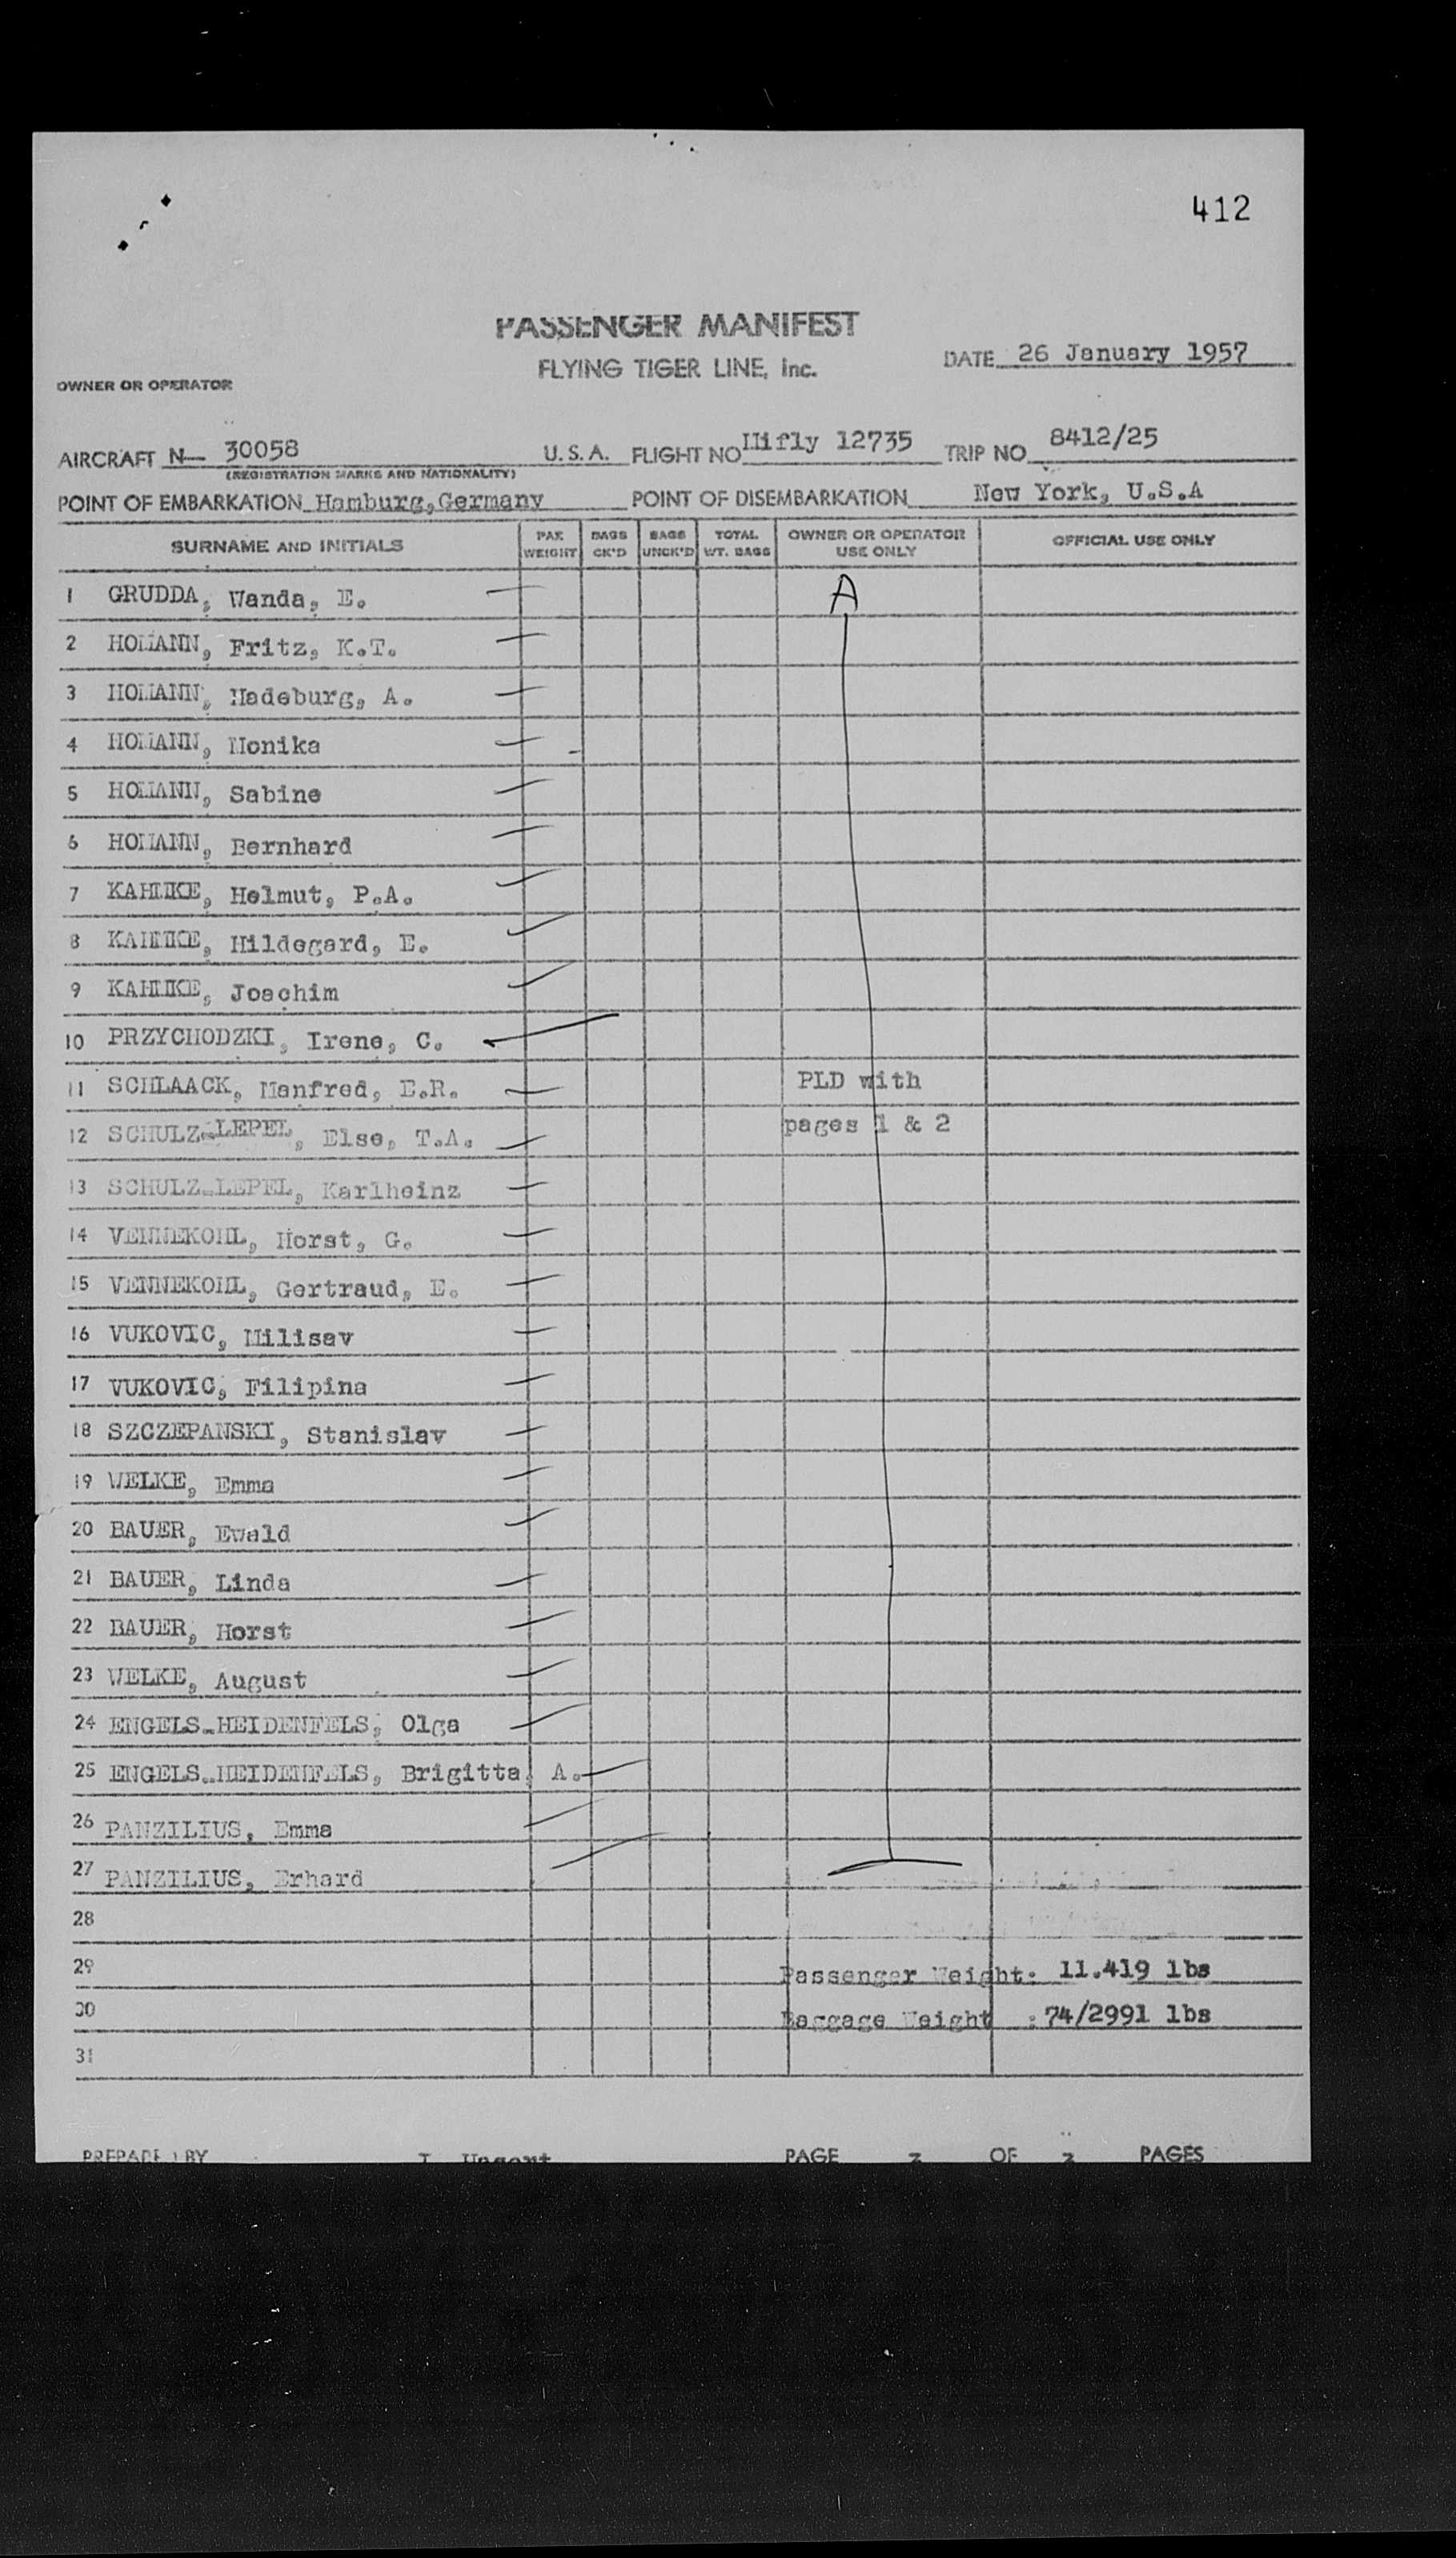 412
PASSENGER MANIFEST
FLYING TIGER LINE, Inc.
DATE 26 January 1957
OWNER OR OPERATOR
AIRCRAFT N— 30058 U.S.A. FLIGHT NO Hifly 12735 TRIP NO 8412/25
(REGISTRATION MARKS AND NATIONALITY)
POINT OF EMBARKATION Hamburg, Germany POINT OF DISEMBARKATION New York, U.S.A
SURNAME AND INITIALS PAX WEIGHT BAGS CK'D BAGS UNCK'D TOTAL WT. BAGS OWNER OR OPERATOR USE ONLY OFFICIAL USE ONLY
1 GRUDDA, Wanda, E. A
2 HOMANN, Fritz, K.T.
3 HOMANN, Hadeburg, A.
4 HOMANN, Monika
5 HOMANN, Sabine
6 HOMANN, Bernhard
7 KAHLKE, Helmut, P.A.
8 KAHLKE, Hildegard, E.
9 KAHLKE, Joachim
10 PRZYCHODZKI, Irene, C.
11 SCHLAACK, Manfred, E.R. PLD with
12 SCHULZ-LEPEL, Else, T.A. pages 1 & 2
13 SCHULZ-LEPEL, Karlheinz
14 VENNEKOHL, Horst, G.
15 VENNEKOHL, Gertraud, E.
16 VUKOVIC, Milisav
17 VUKOVIC, Filipina
18 SZCZEPANSKI, Stanislav
19 WELKE, Emma
20 BAUER, Ewald
21 BAUER, Linda
22 BAUER, Horst
23 WELKE, August
24 ENGELS-HEIDENFELS, Olga
25 ENGELS-HEIDENFELS, Brigitta, A.
26 PANZILIUS, Emma
27 PANZILIUS, Erhard
28
29 Passenger Weight: 11.419 lbs
30 Baggage Weight : 74/2991 lbs
31
PREPARED BY PAGE OF PAGES